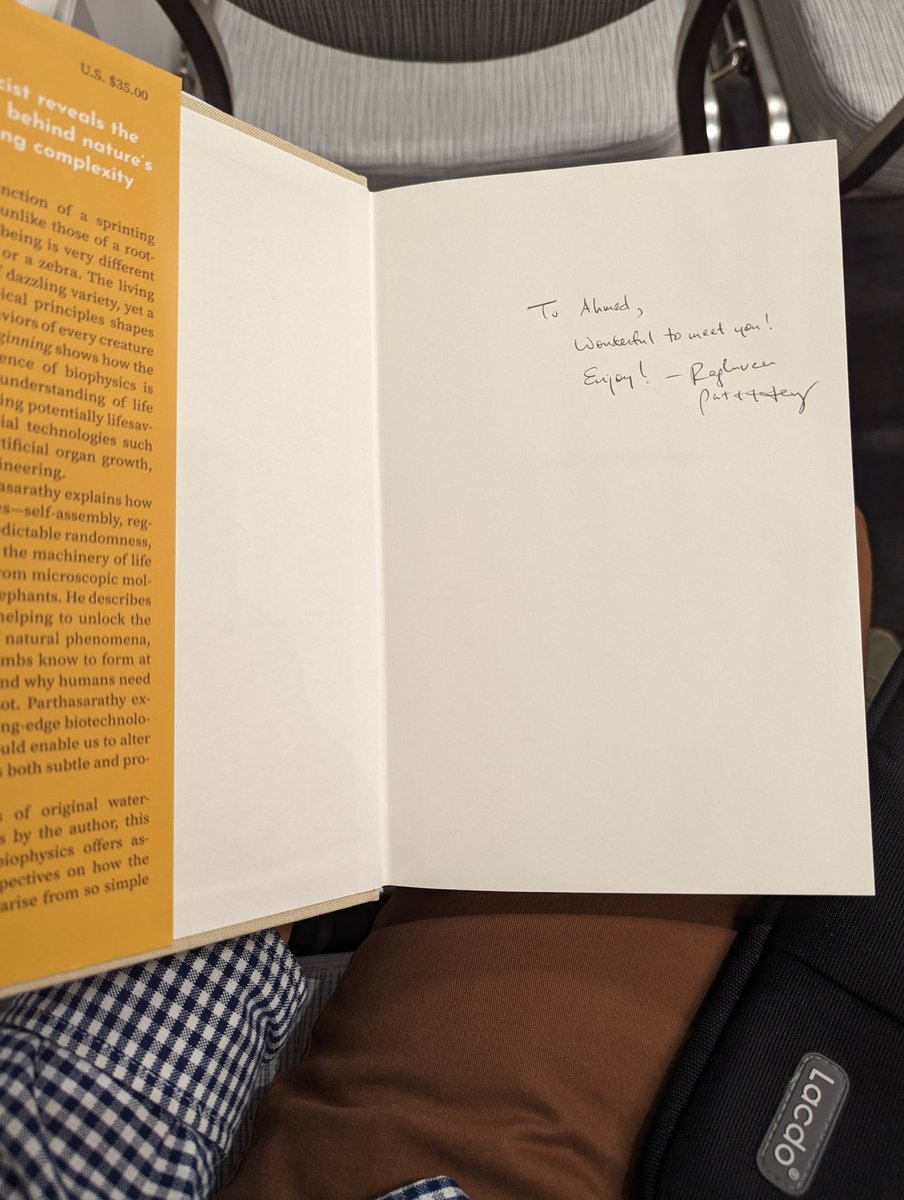 U.S. $35.00
cist reveals the
behind nature's
ng complexity
nction of a sprinting
unlike those of a root-
being is very different
or a zebra. The living
dazzling variety, yet a
ical principles shapes
aviors of every creature
ginning shows how the
ence of biophysics is
understanding of life
ing potentially lifesav-
ial technologies such
tificial organ growth,
ineering.
asarathy explains how
es—self-assembly, reg-
dictable randomness,
the machinery of life
rom microscopic mol-
ephants. He describes
helping to unlock the
natural phenomena,
mbs know to form at
nd why humans need
ot. Parthasarathy ex-
ng-edge biotechnolo-
uld enable us to alter
s both subtle and pro-
s of original water-
s by the author, this
biophysics offers as-
pectives on how the
arise from so simple
To Ahmed,
Wonderful to meet you!
Enjoy! — Raghuveer
Lacdo®